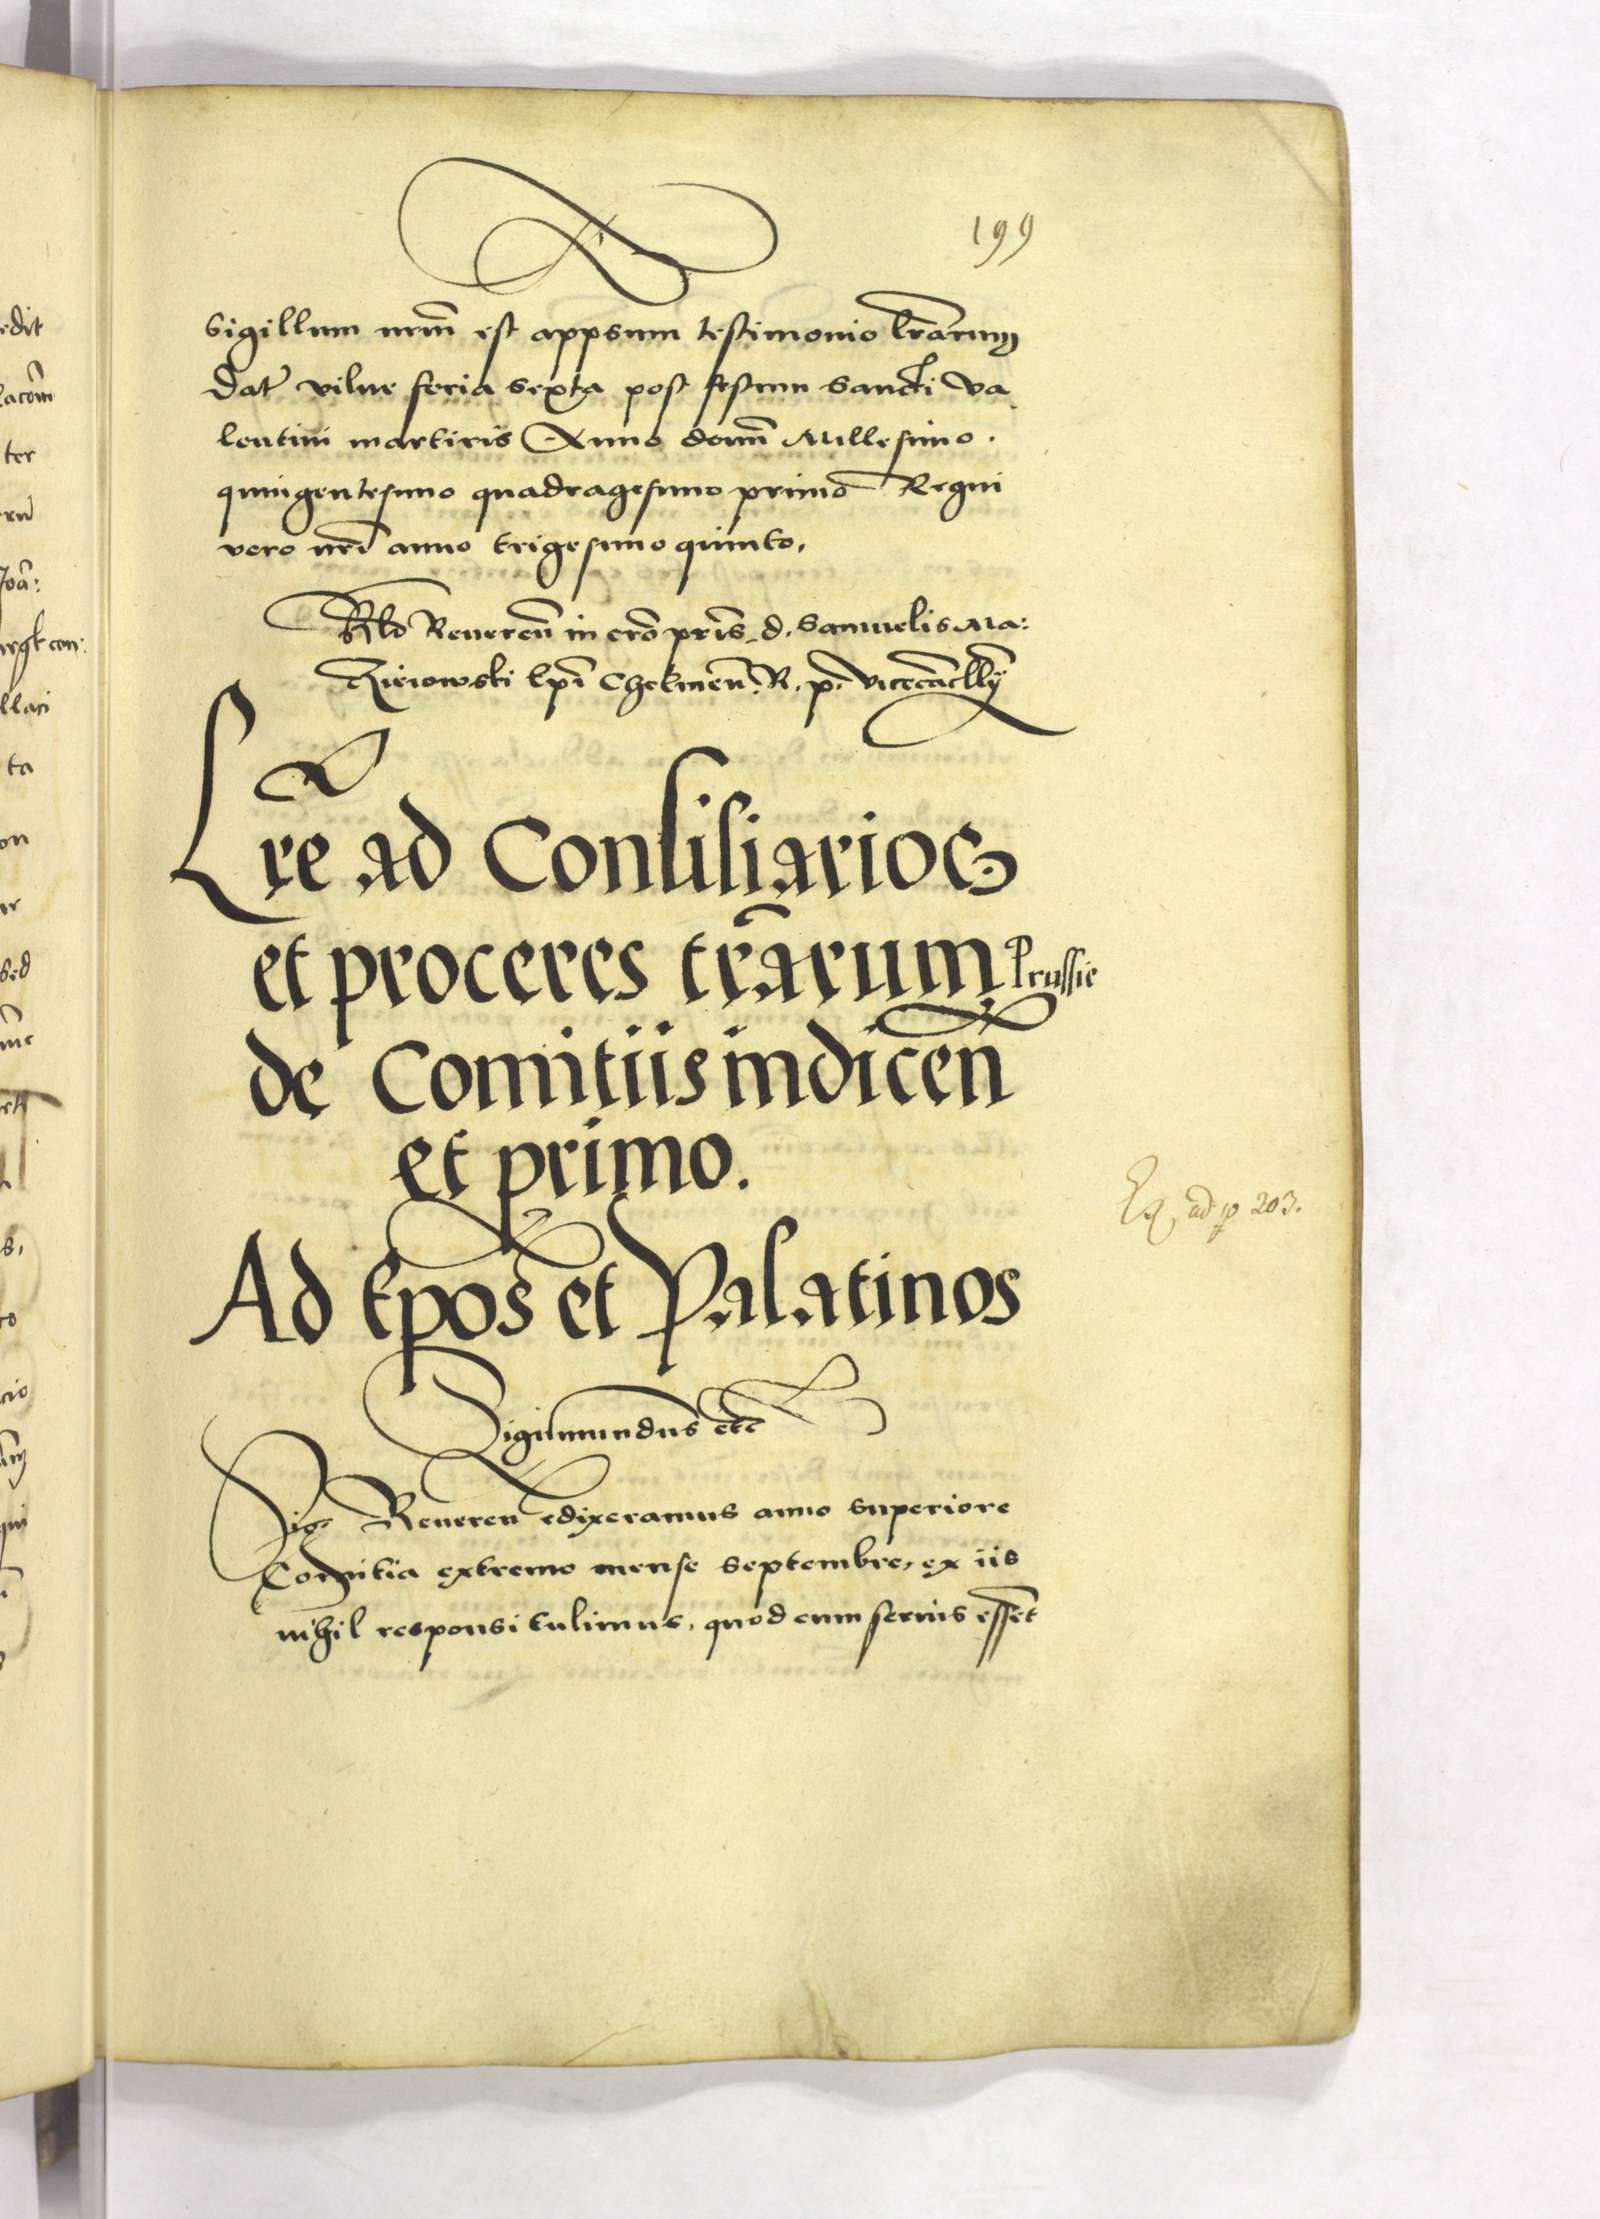 199
Sigillum nr̃m est appsum testimonio lr̃arum
Dat̃ vilne feria sexta post festum Sancti Va
lentini martiris Anno domĩ Millesimo.
quingentesimo quadragesimo primo Regni
vero nr̃i anno trigesimo quinto,
Rlo Reueren̄ in cr̃o pr̃is d. Samuelis Ma:
Ziejowski Ep̃i Chelmen̄. R. p. vicecãcllr̃ij
Lr̃e ad Consiliarios
et proceres tr̃arum Prussie
de Comitiis indicen̄
et primo.
Ex. ad p 203.
Ad Ep̃os et Palatinos
Sigismundus etc
Reueren̄ edixeramus anno superiore
Comitia extremo mense Septembre, ex iis
nihil responsi tulimus, quod cum serius esset
edit
ter
llaci
ta
on
sed